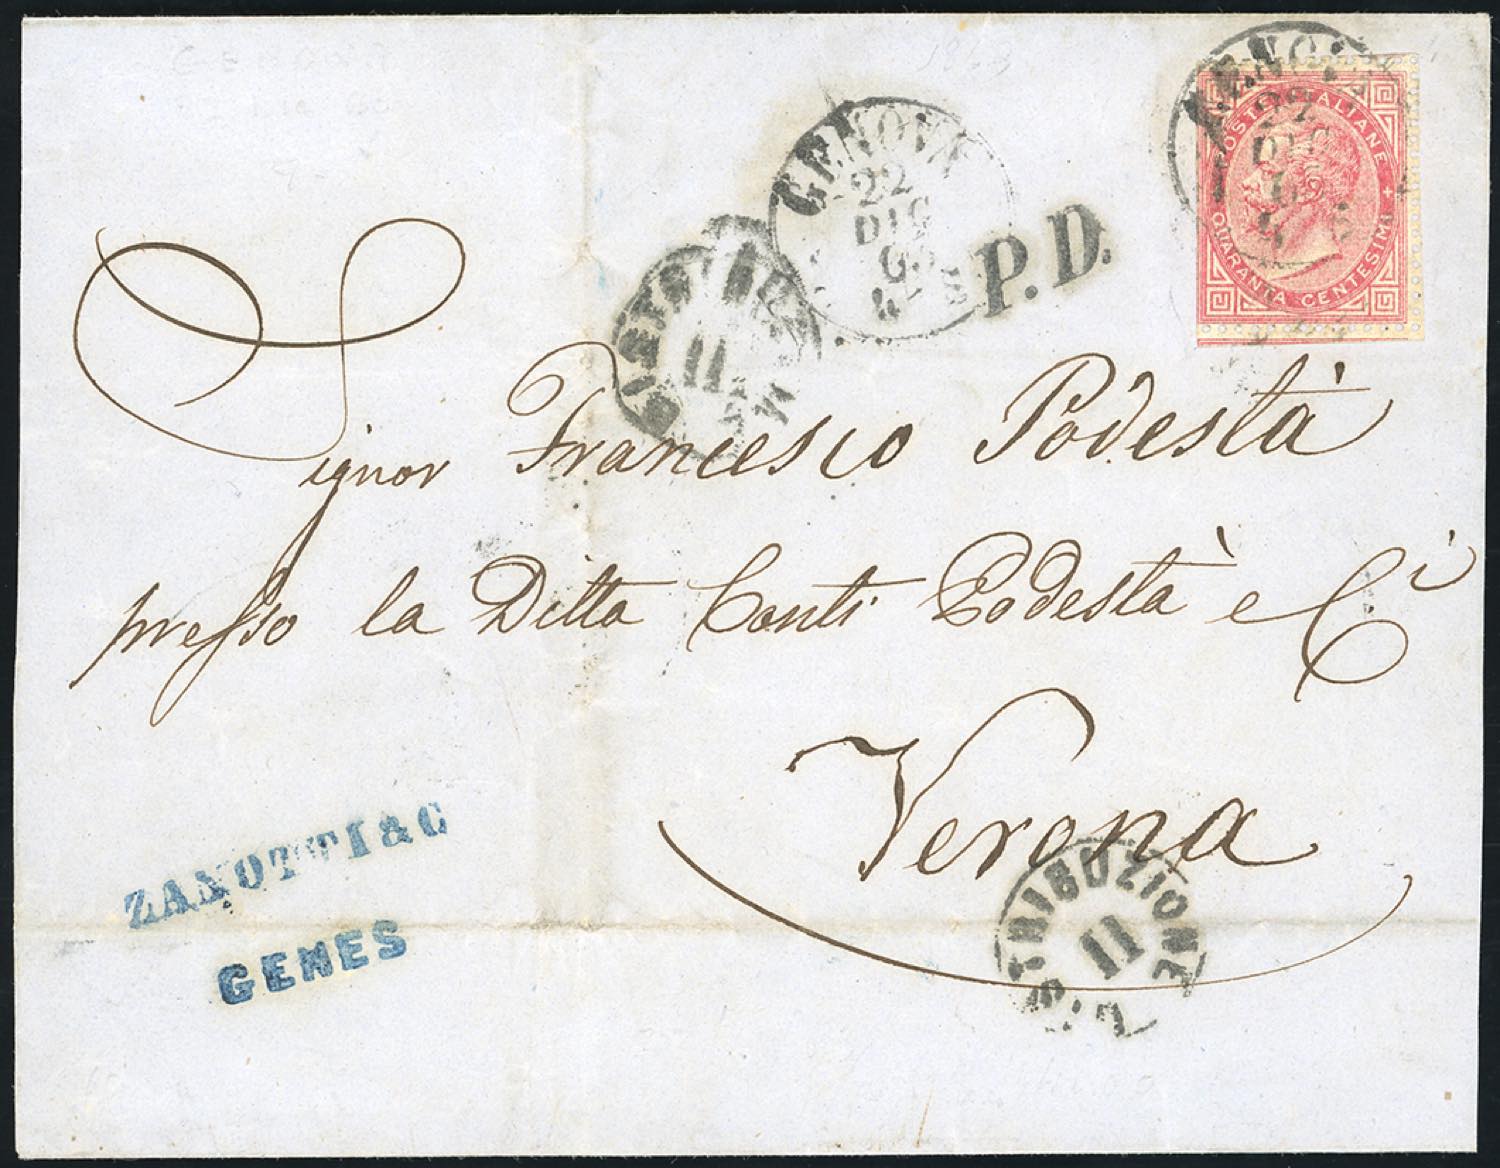 GENOVA
22
DIC
POSTE ITALIANE
QUARANTA CENTESIMI
GENOVA
22
DIC
P.D.
11
Signor Francesco Podestà
presso la Ditta Conti Podestà e Cⁱ
Verona
ZANOTTI & C
GENES
DISTRIBUZIONE
11